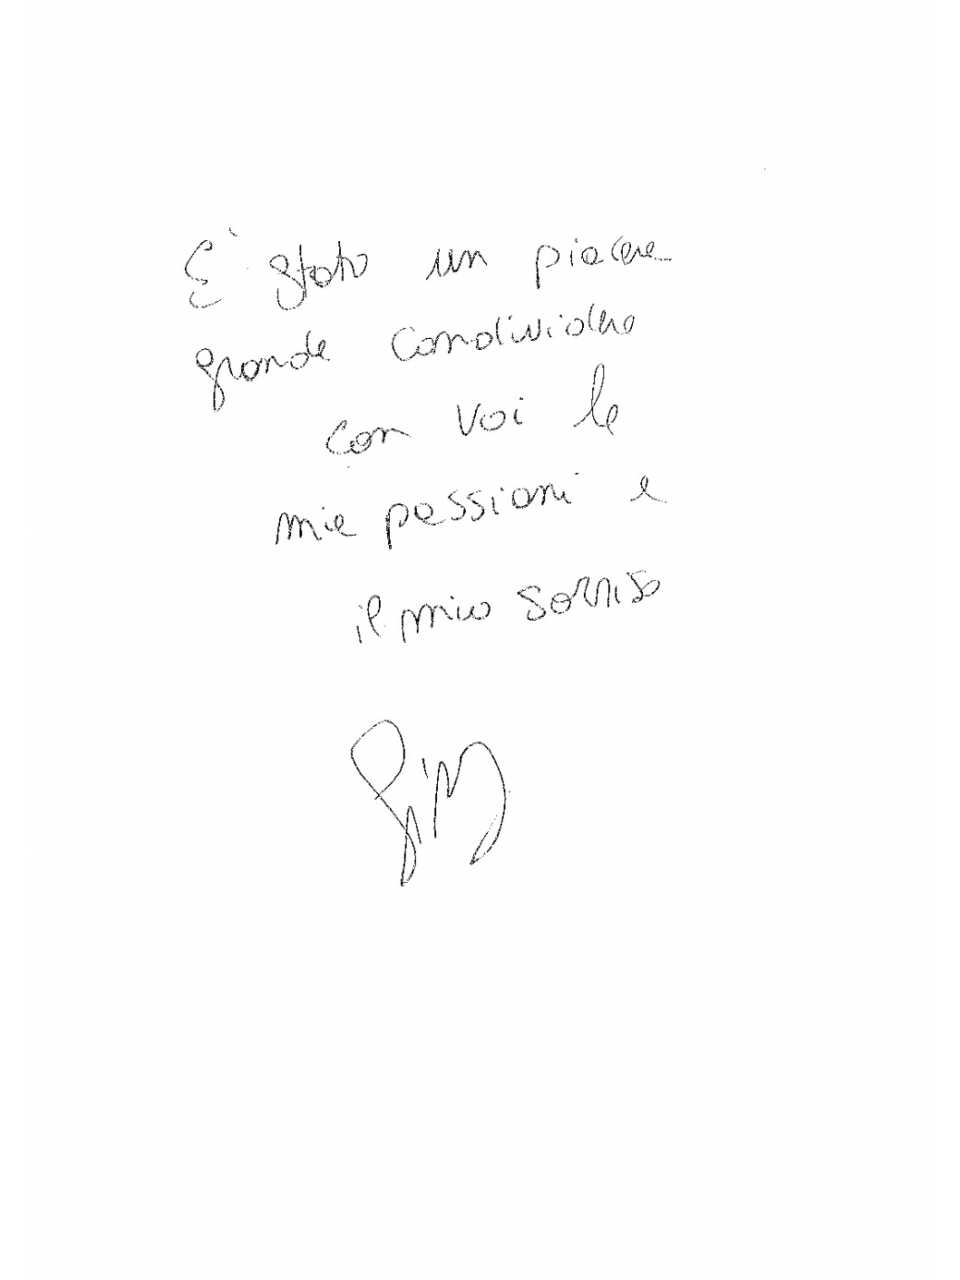 E' stato un piacere
grande condividere
con voi le
mie passioni e
il mio sorriso